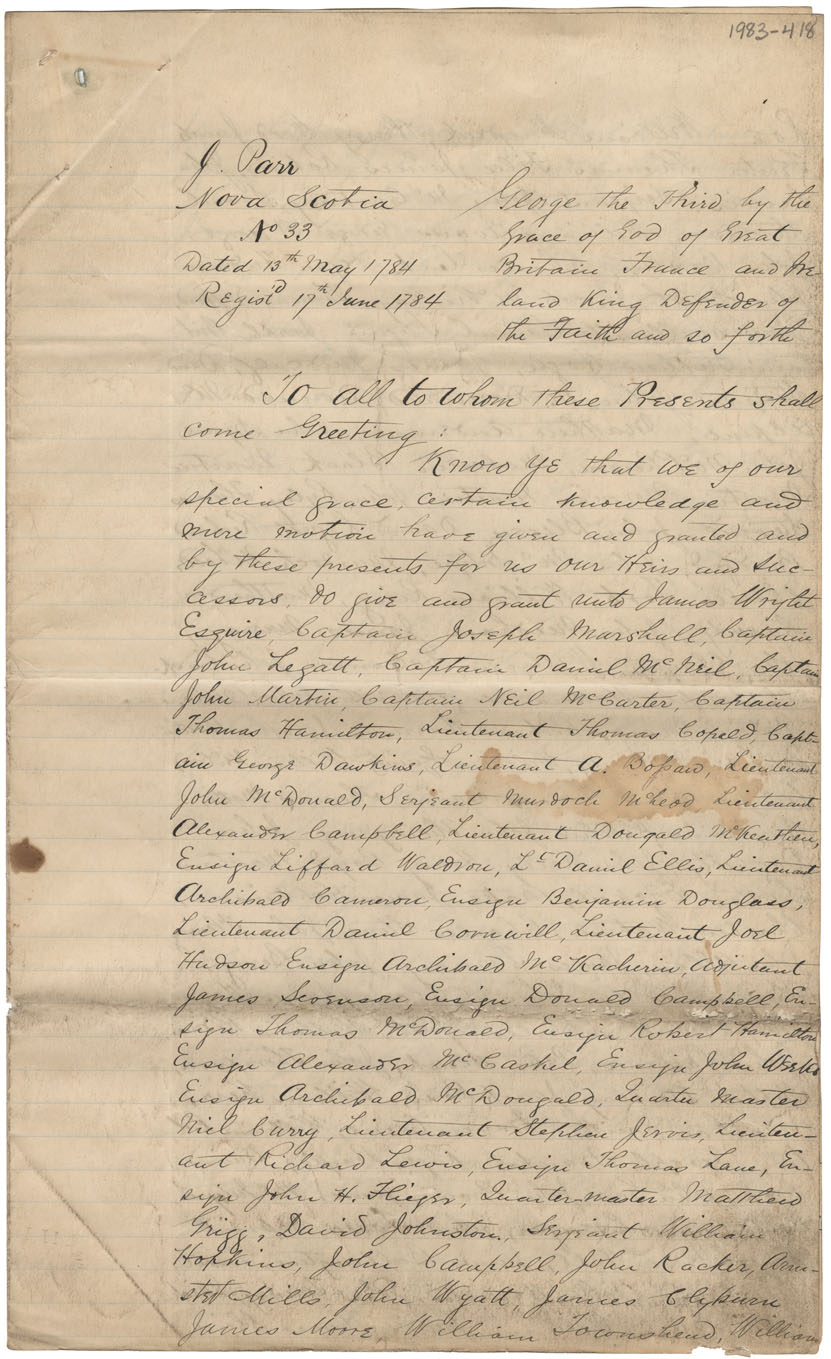 1983-418
J. Parr
Nova Scotia
No 33
Dated 13th May 1784
Registd 17th June 1784
George the Third by the
Grace of God of Great
Britain France and Ire-
land King Defender of
the Faith and so forth
To all to whom these Presents shall
come Greeting:
Know Ye that we of our
special grace, certain knowledge and
mere motion have given and granted and
by these presents for us our Heirs and Suc-
cessors, do give and grant unto James Wright
Esquire, Captain Joseph Marshall, Captain
John Legatt, Captain Daniel McNeil, Captain
John Martin, Captain Neil McCarter, Captain
Thomas Hamilton, Lieutenant Thomas Copeld, Capt-
ain George Dawkins, Lieutenant A. Lieutenant
John McDonald, Serjeant Murdoch McLeod Lieutenant
Alexander Campbell, Lieutenant Dougald
Ensign Liffard Waldron, Lt Daniel Ellis, Lieutenant
Archibald Cameron, Ensign Benjamin Douglass,
Lieutenant Daniel Cornwill, Lieutenant Joel
Hudson Ensign Archibald McKacherin, Adjutant
James Sevenson, Ensign Donald Campbell, En-
sign Thomas McDonald, Ensign Robert Hamilton
Ensign Alexander McCaskel, Ensign John Weeks
Ensign Archibald McDougald, Quarter Master
Niel Curry, Lieutenant Stephen Jervis, Lieuten-
ant Richard Lewis, Ensign Thomas Lane, En-
sign John H. Flieger, Quarter-master Matthew
Grigg, David Johnston, Serjeant William
Hopkins, John Campbell, John Racker, Arm-
sted Mills, John Wyatt, James Clyburn
James Moore, William Townshend, William